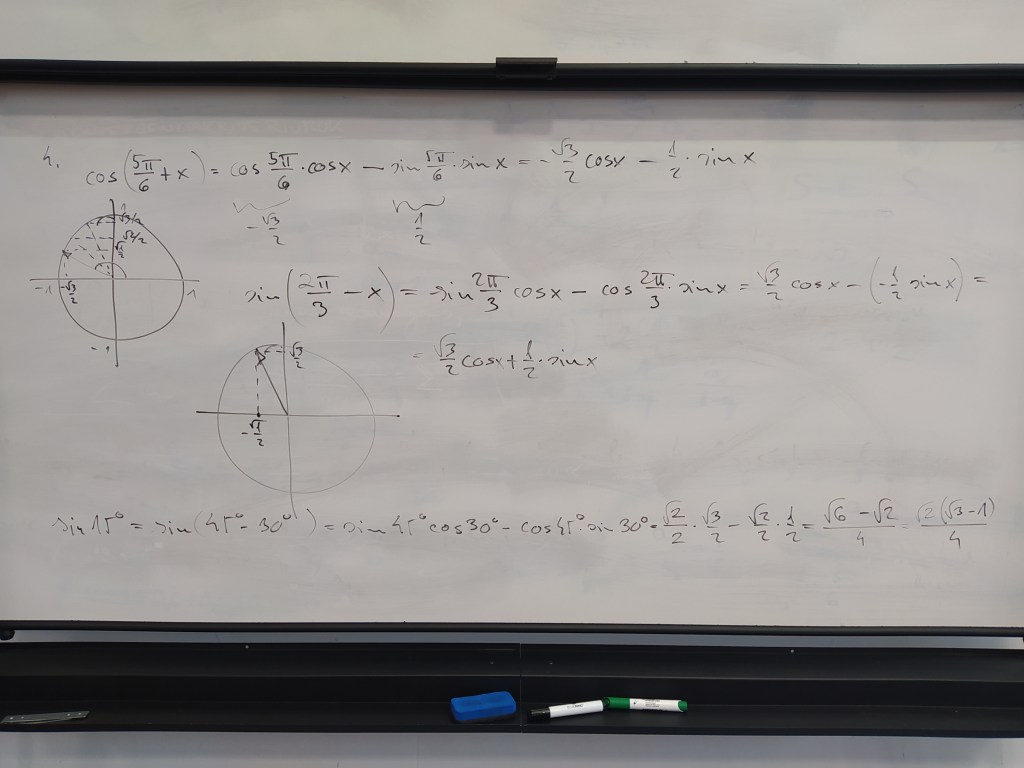 4.
cos(5π/6 + x) = cos 5π/6 · cosx − sin 5π/6 · sin x = −√3/2 cosx − 1/2 · sin x
−√3/2 1/2
1
√3/2
√2/2
√1/2
−1 −√3/2 1
−1
sin(2π/3 − x) = sin 2π/3 cosx − cos 2π/3 · sin x = √3/2 cosx − (−1/2 sin x) =
= √3/2 cosx + 1/2 · sin x
√3/2
−√1/2
sin 15° = sin(45° − 30°) = sin 45° cos 30° − cos 45° · sin 30° = √2/2 · √3/2 − √2/2 · 1/2 = √6 − √2/4 = √2(√3−1)/4